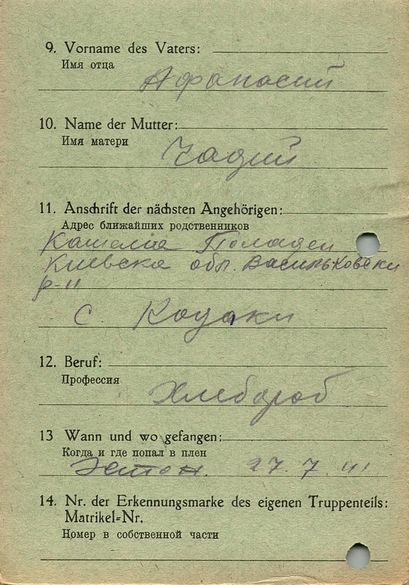 9. Vorname des Vaters:
Имя отца
Афанасий
10. Name der Mutter:
Имя матери
11. Anschrift der nächsten Angehörigen:
Адрес ближайших родственников
Киевска обл. Васильковски
р-н
с. Козаки
12. Beruf:
Профессия
Хлебороб
13 Wann und wo gefangen:
Когда и где попал в плен
Эстон. 27.7.41
14. Nr. der Erkennungsmarke des eigenen Truppenteils:
Matrikel=Nr.
Номер в собственной части